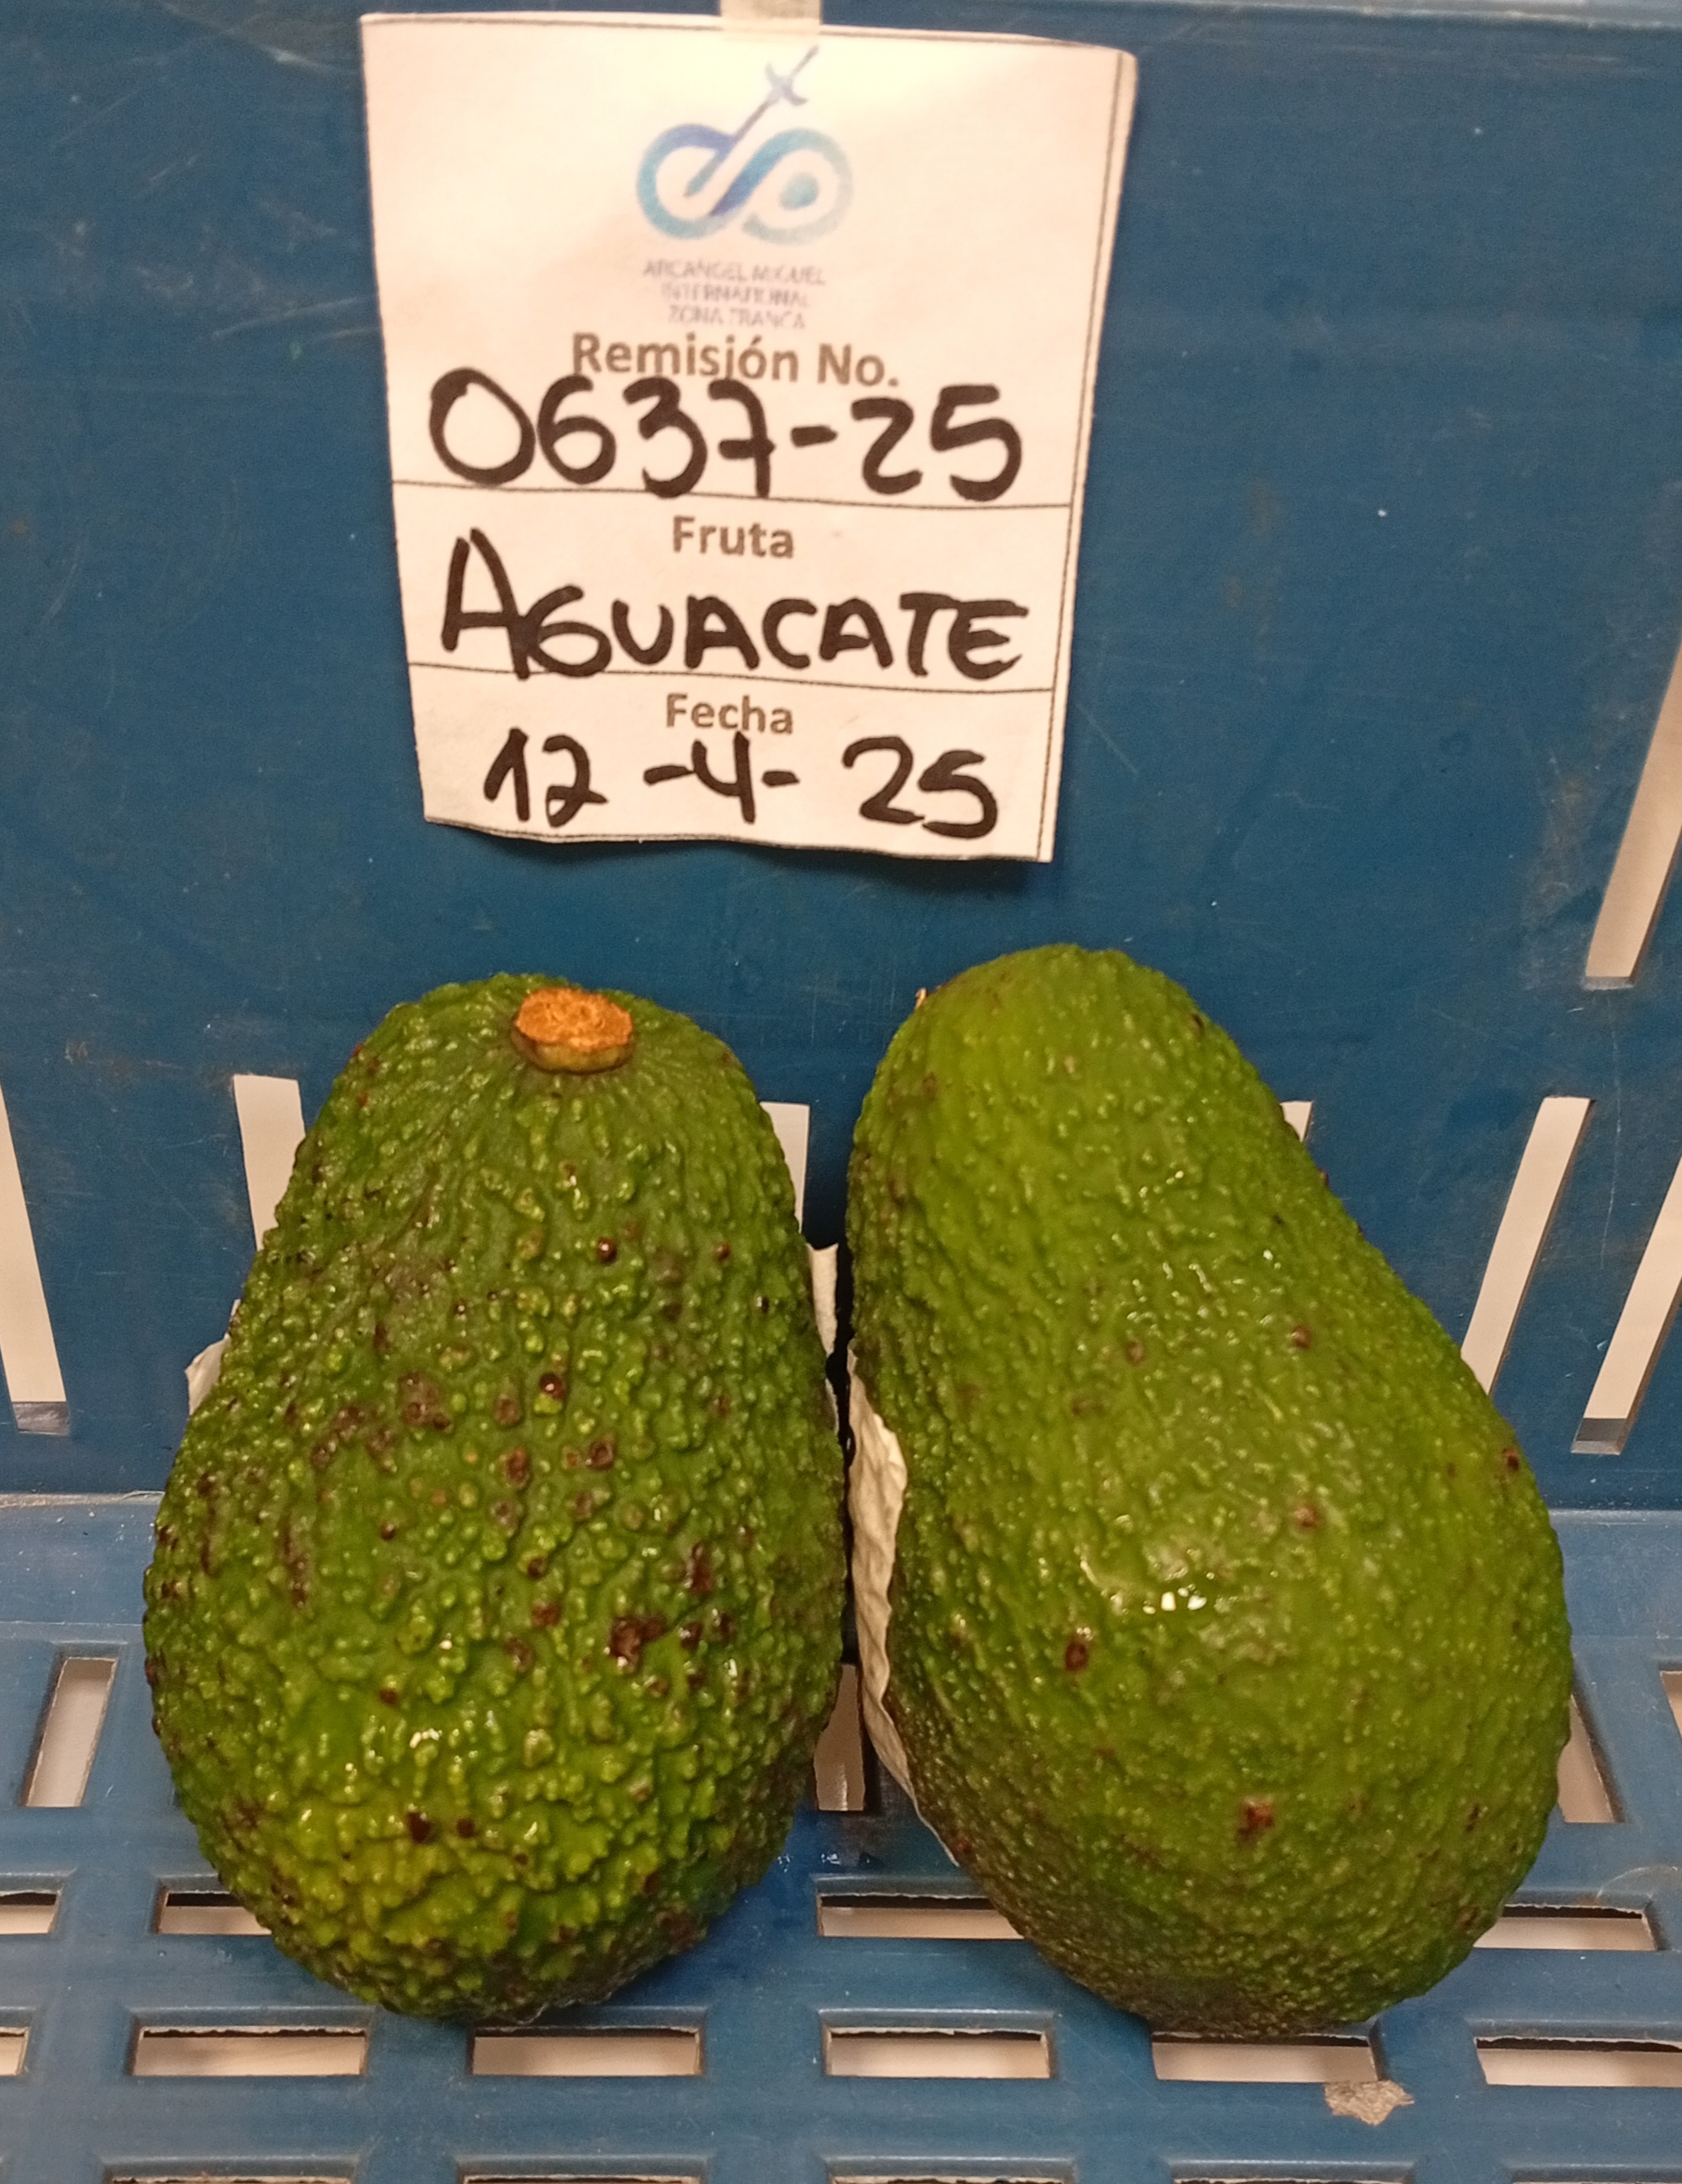 ARCANGEL MIGUEL
INTERNATIONAL
ZONA FRANCA
Remisión No.
0637-25
Fruta
AGUACATE
Fecha
12-4-25